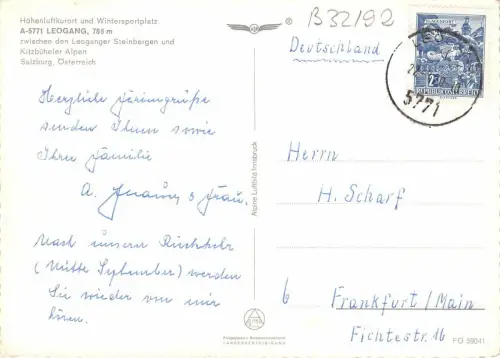 Höhenluftkurort und Wintersportplatz
A-5771 LEOGANG, 788 m
zwischen den Leoganger Steinbergen und
Kitzbüheler Alpen
Salzburg, Österreich
B32192
Deutschland
REPUBLIK ÖSTERREICH
5771
Herzliche Feriengrüße
senden Ihnen sowie
Ihrer Familie
A. u. Frau.
Nach unserer Rückkehr
(Mitte September) werden
Sie wieder von mir
hören.
Alpine Luftbild Innsbruck
Herrn
H. Scharf
6 Frankfurt/Main
Fichtestr. 16
FO 59041